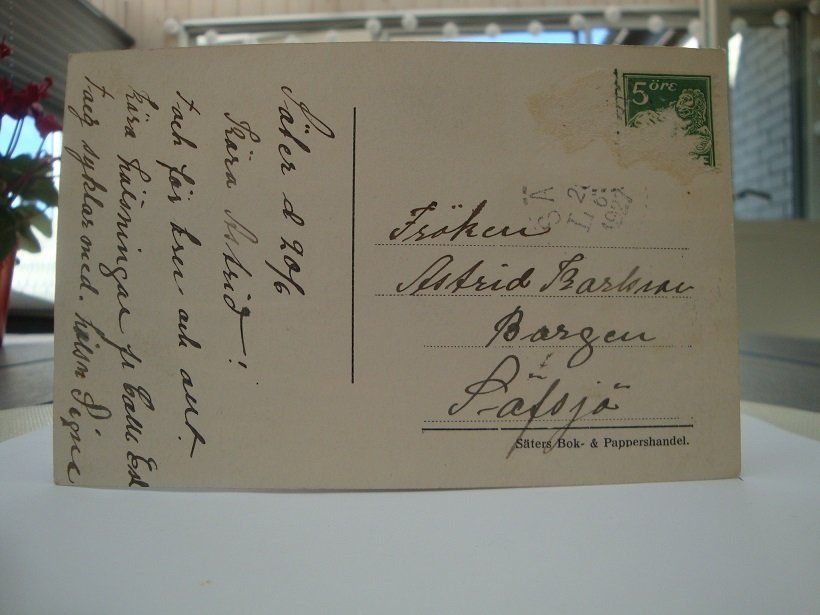 Säter d 20/6
Kära Astrid!
Tack för brev och allt.
Kära hälsningar fr
Tag syklar med. hälsn Signe
5 ÖRE
SÄ
1927
Fröken
Astrid Karlsson
Borgen
Säfsjö
Säters Bok- & Pappershandel.